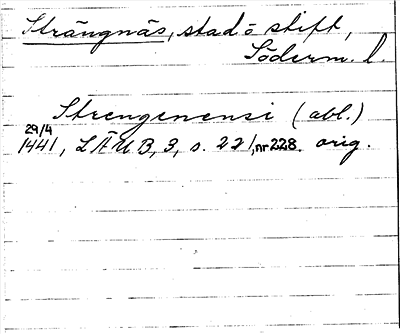 Strängnäs, stad o stift,
Söderm. l.
Strengenensi (abl.)
29/4
1441, LÄUB, 3, s. 221, nr 228. orig.